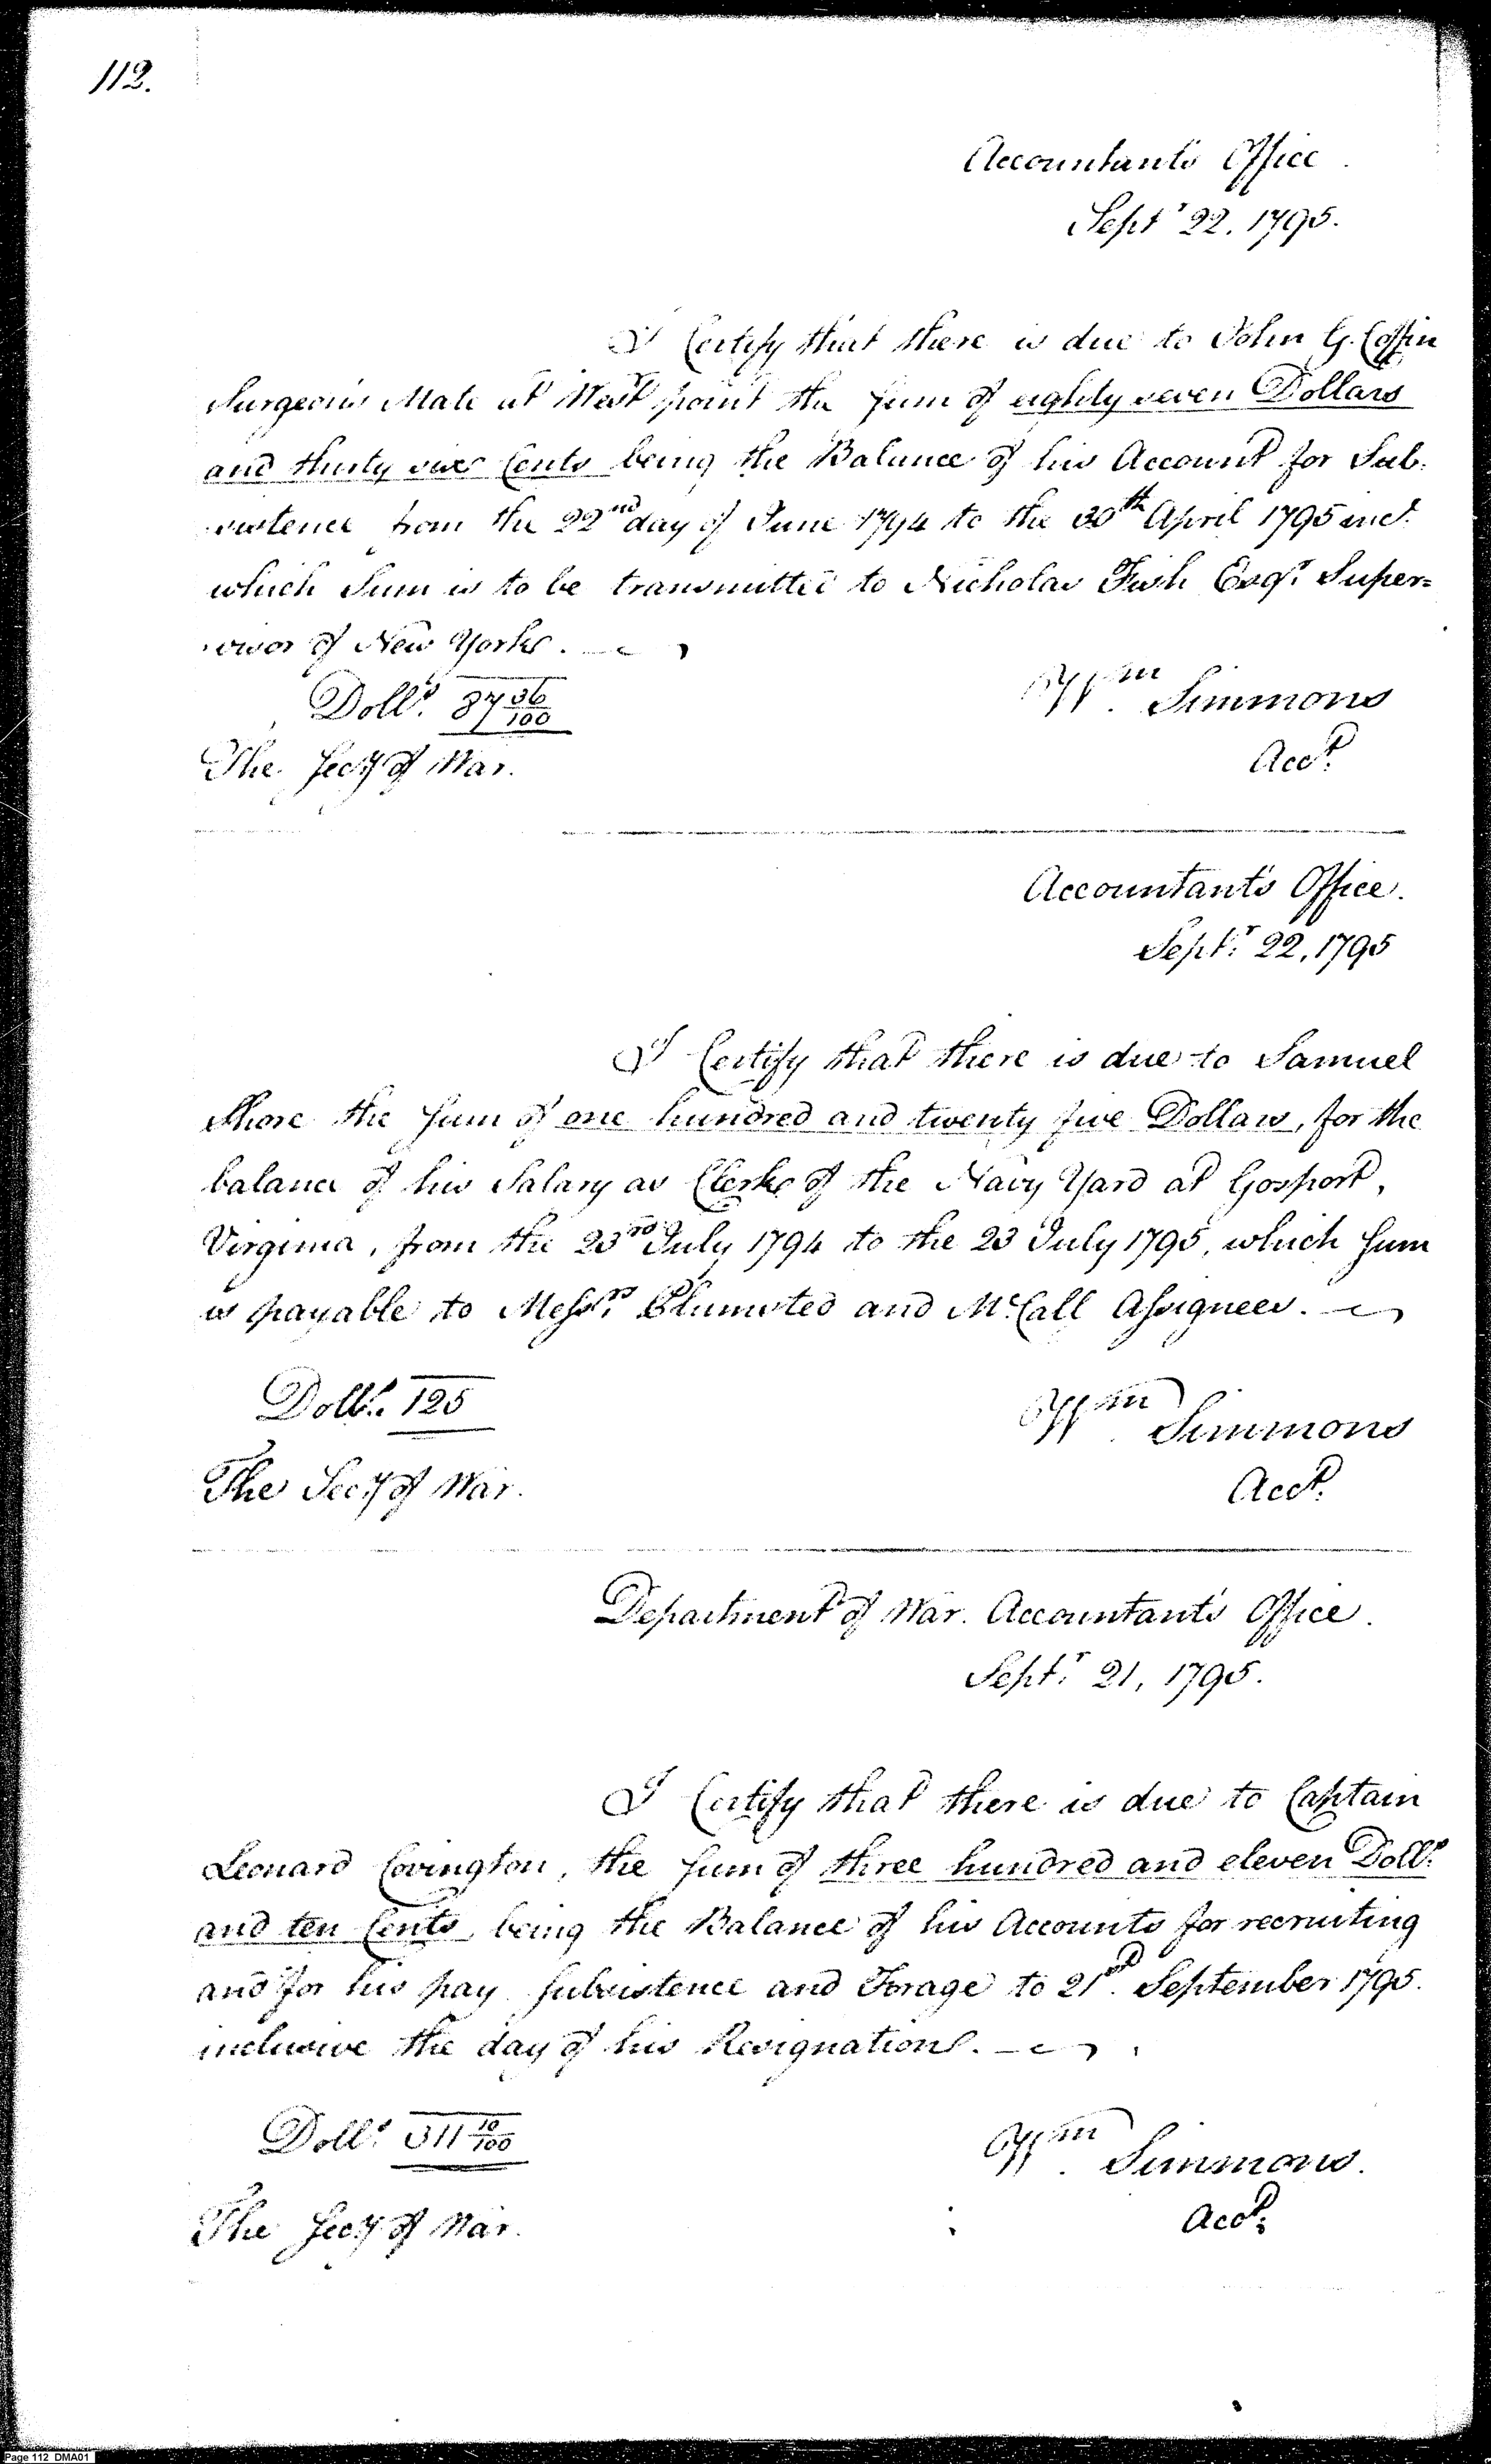 112.
Accountants Office.
Sept.r 22. 1795.
I Certify that there is due to John G. Coffin
Surgeons Mate at West point the sum of eighty seven Dollars
and thirty six Cents being the Balance of his Account for Sub-
sistence from the 22nd day of June 1794 to the 30th April 1795 incl.
which Sum is to be transmitted to Nicholas Fish Esqr. Super=
visor of New York.
Dolls. 87 36/100
Wm. Simmons
The Secy. of War.
Acct.
Accountant's Office.
Septr. 22, 1795
I Certify that there is due to Samuel
Shore the sum of one hundred and twenty five Dollars, for the
balance of his Salary as Clerk of the Navy Yard at Gosport,
Virginia, from the 23rd July 1794 to the 23 July 1795, which sum
is payable to Messrs. Plumsted and McCall Assignees.
Dolls. 125
Wm. Simmons
The Secy. of War.
Acct.
Department of War. Accountant's Office.
Septr. 21, 1795.
I Certify that there is due to Captain
Leonard Covington, the sum of three hundred and eleven Dolls.
and ten Cents, being the Balance of his Accounts for recruiting
and for his pay subsistence and Forage to 21st. September 1795.
inclusive the day of his Resignation.
Dolls. 311 10/100
Wm. Simmons.
The Secy. of War.
Acct.
Page 112 DMA01